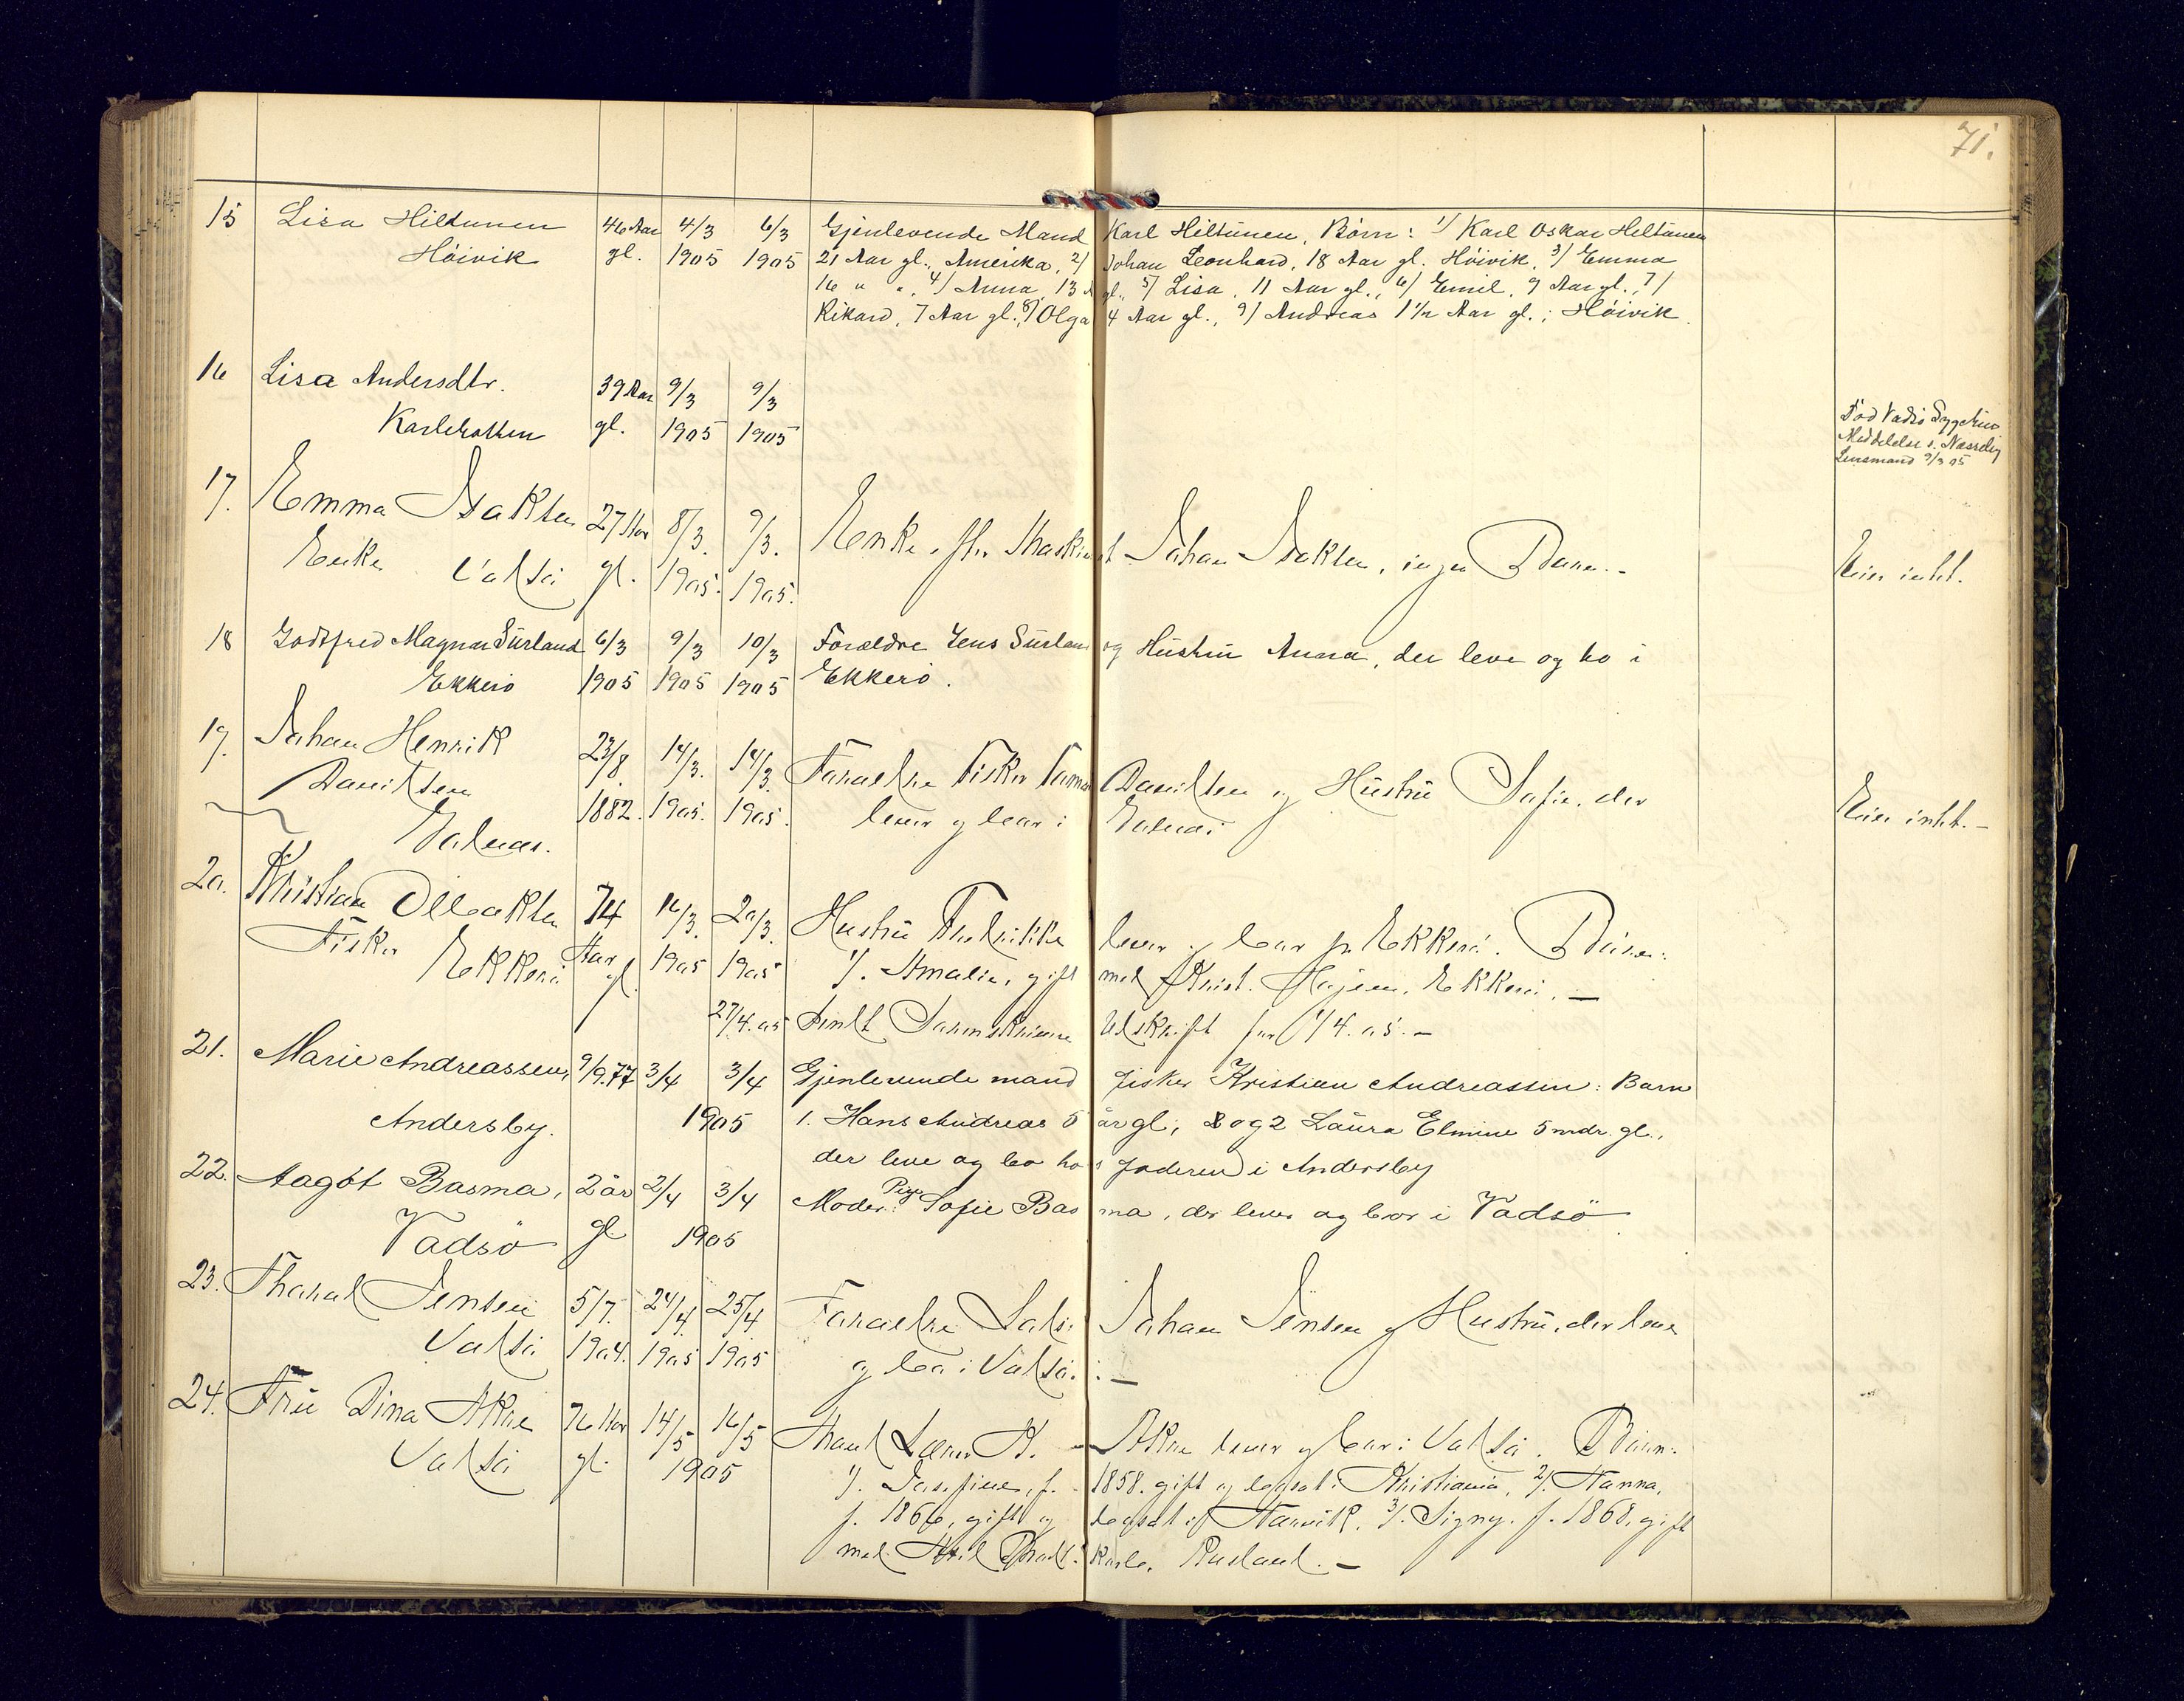 71.
15 Lisa Hiltunen 46 Aar 4/3 6/3 Gjenlevende Mand Karl Hiltunen, Børn: 1/ Karl Oskar Hiltunen
Höivik gl. 1905 1905 21 Aar gl., Amerika, 2/ Johan Leonhard, 18 Aar gl. Höivik, 3/ Emma
16 " ", 4/ Anna, 13 A gl., 5/ Lisa, 11 Aar gl., 6/ Emil, 9 Aar gl., 7/
Rikard, 7 Aar gl., 8/ Olga 4 Aar gl., 9/ Andreas 1 1/2 Aar gl.; Höivik.
16 Lisa Andersdtr. 39 Aar 9/3 9/3
Karlebotten gl. 1905 1905
Död Vadsö Sygehus
Meddelelse s. Nesseby
Lensmand 9/3 05
17. Emma Isaksen 27 Aar 8/3. 9/3. Enke eftr. Maskinist Johan Isaksen, ingen Børn.-
Enke Vadsö gl. 1905. 1905. Eier intet.
18 Godtfred Magnus Surland 6/3 9/3 10/3 Forældre Jens Surland og Hustru Anna, der leve og bo i
Ekkerö 1905 1905 1905 Ekkerö.
19. Johan Henrik 23/8. 14/3. 14/3. Forældre Fisker Danilsen og Hustru Sofie, der
Danilsen 1882. 1905. 1905. lever og boer i Eier intet.-
20. Kristian 74 16/3. 20/3. Hustru Fredrikke lever og boer på Ekkerö. Börn:
Fisker Ekkerö Aar gl. 1905 1905 1/. Amalie, gift med Krist. Ekkerö. —
27/4. 05 Sendt Sorenskriveren Udskrift for 1/4. 05.-
21. Marie Andreassen, 9/9.77 3/4 3/4 Gjenlevende mand fisker Kristian Andreassen: Barn
Andersby. 1905 1. Hans Andreas 5 år gl, og 2 Laura Elmine 5 mdr. gl.,
der leve og bo hos faderen i Andersby
22. Aagot Basma, 2 år 2/4 3/4 Moder: Pige Sofie Basma, der lever og bor i Vadsö.
Vadsö gl 1905
23. Harald Jensen 5/7. 24/4. 25/4 Forældre Johan Jensen og Hustru, der leve
Vadsö 1904. 1905 1905 og bo i Vadsö. —
24. Fru Dina Akre 76 Aar 14/5 16/5 Mand K. Akre lever og boer i Vadsö. Børn:
Vadsö gl. 1905 1/. Josefine, f. 1858. gift og bosat i Kristiania, 2/. Hanna,
f. 1866, gift og bosat i Narvik, 3/. Signy. f. 1868, gift
med Rusland. —